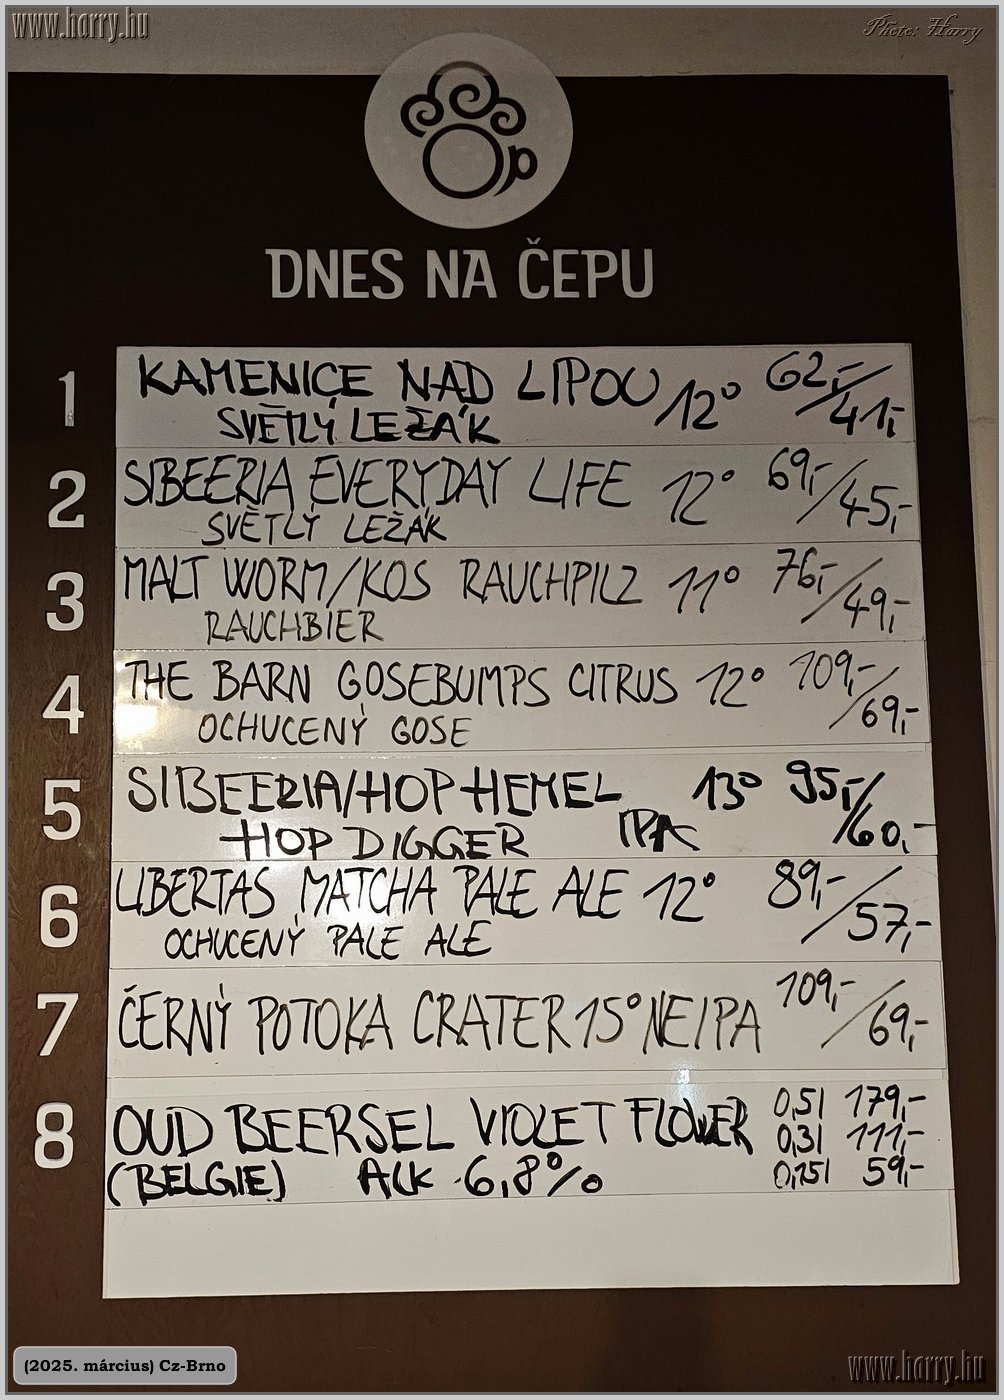 www.harry.hu
Photo: Harry
DNES NA ČEPU
1 KAMENICE NAD LIPOU 12° 62,-/41,-
SVĚTLÝ LEŽÁK
2 SIBEERIA EVERYDAY LIFE 12° 69,-/45,-
SVĚTLÝ LEŽÁK
3 MALT WORM/KOS RAUCHPILZ 11° 76,-/49,-
RAUCHBIER
4 THE BARN GOSEBUMPS CITRUS 12° 109,-/69,-
OCHUCENÝ GOSE
5 SIBEERIA/HOP HEMEL 13° 95,-/60,-
HOP DIGGER IPA
6 LIBERTAS MATCHA PALE ALE 12° 89,-/57,-
OCHUCENÝ PALE ALE
7 ČERNÝ POTOKA CRATER 15° NEIPA 109,-/69,-
8 OUD BEERSEL VIOLET FLOWER 0,5l 179,-
0,3l 111,-
(BELGIE) ALK 6,8% 0,15l 59,-
(2025. március) Cz-Brno
www.harry.hu